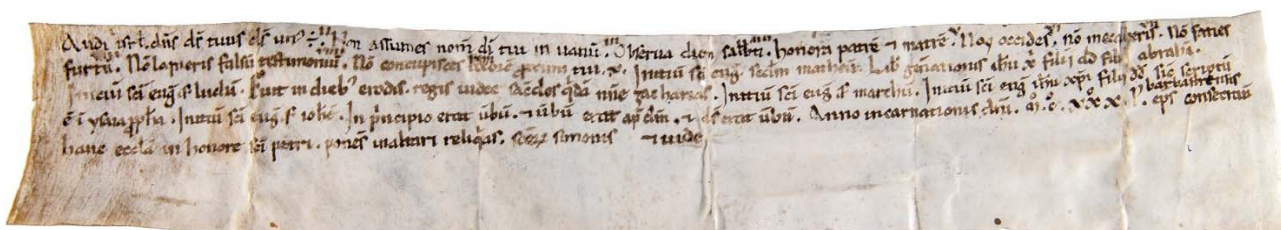 Audi isrł. dn̄s ds̄ tuus ds̄ un' ÷. Non assumes nom̄ dī tui in uanū. Obserua diem sabbti. honora patrē & matrē. Non occides. nō mecaberis. Nō facies
furtū. Nō loq̄ueris falsū testimoniū. Nō concupisces p̄ximi tui. Initiū sc̄i eug̃. sc̄dm matheū. Lib' gen̄ationis ihū x̄ filii dd fili abrahā.
Initiū sc̄i eug̃ s̄ lucam. Fuit in dieb' erodis. regis iudee sac̄dos q̄dā nn̄e zacharias. Initiū sc̄i eug̃ s̄ marchū. Iniciū sc̄i eug̃ ihū xp̄i filii dī. sic scriptū
ē ī ysaia pp̄ha. Initiū sc̄i eug̃ s̄ iohē. In p̄ncipio erat ūbū. & ūbū erat ap̄ dm̄. & ds̄ erat ūbū. Anno incarnationis dn̄i. mº. cº. xº xº xº. P. barbastrensis eps consecrauit
hanc eccłam in honore sc̄i petri. ponens in altari reliq̄as. simonis & iude